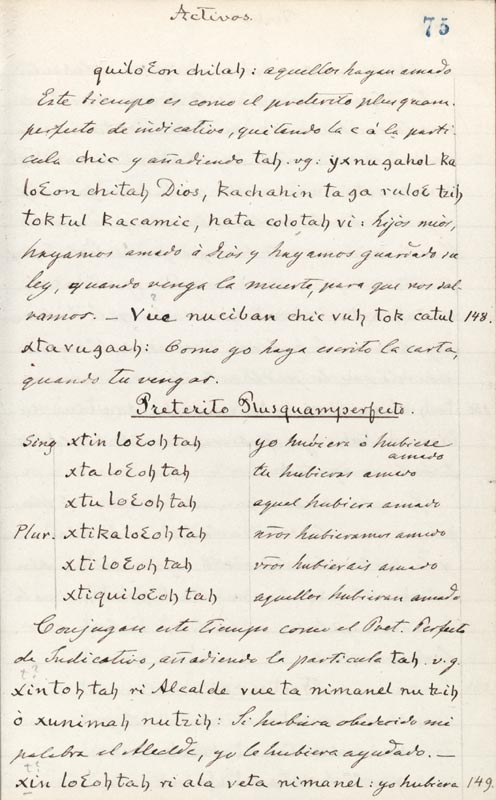 Activos.
75
quiloɛon chitaḥ: aquellos hayan amado
Este tiempo es como el preterito plusquam-
perfecto de indicativo, quitando la c á la parti-
cula chic y añadiendo taḥ. vg: ÿxnugahol ka
loɛon chitaḥ Dios, kachahin taga ruloɛ tziḥ
toktul kacamic, hata colotaḥ vi: hijos mios,
hayamos amado á Dios y hayamos guardado su
ley, quando venga la muerte, para que nos sal-
vamos. — Vue nuciban chic vuḥ tok catul 148.
xtavugaaḥ: Como yo haya escrito la carta,
quando tu vengas.
Preterito Plusquamperfecto.
Sing xtin loɛoḥ taḥ yo hubiera ó hubiese amado
xta loɛoḥ taḥ tu hubieras amado
xtu loɛoḥ taḥ aquel hubiera amado
Plur. xtikaloɛoḥ taḥ nr̃os hubieramos amado
xti loɛoḥ taḥ vr̃os hubierais amado
xtiquiloɛoḥ taḥ aquellos hubieran amado
Conjugan este tiempo como el Pret. Perfecto
de Indicativo, añadiendo la particula taḥ. v.g.
xintoḥ taḥ ri Alcalde vue ta nimanel nutziḥ
ò xunimaḥ nutziḥ: Si hubiera obedecido mi
palabra el Alcalde, yo le hubiera ayudado. —
xin loɛoḥ taḥ ri ala veta nimanel: yo hubiera 149.